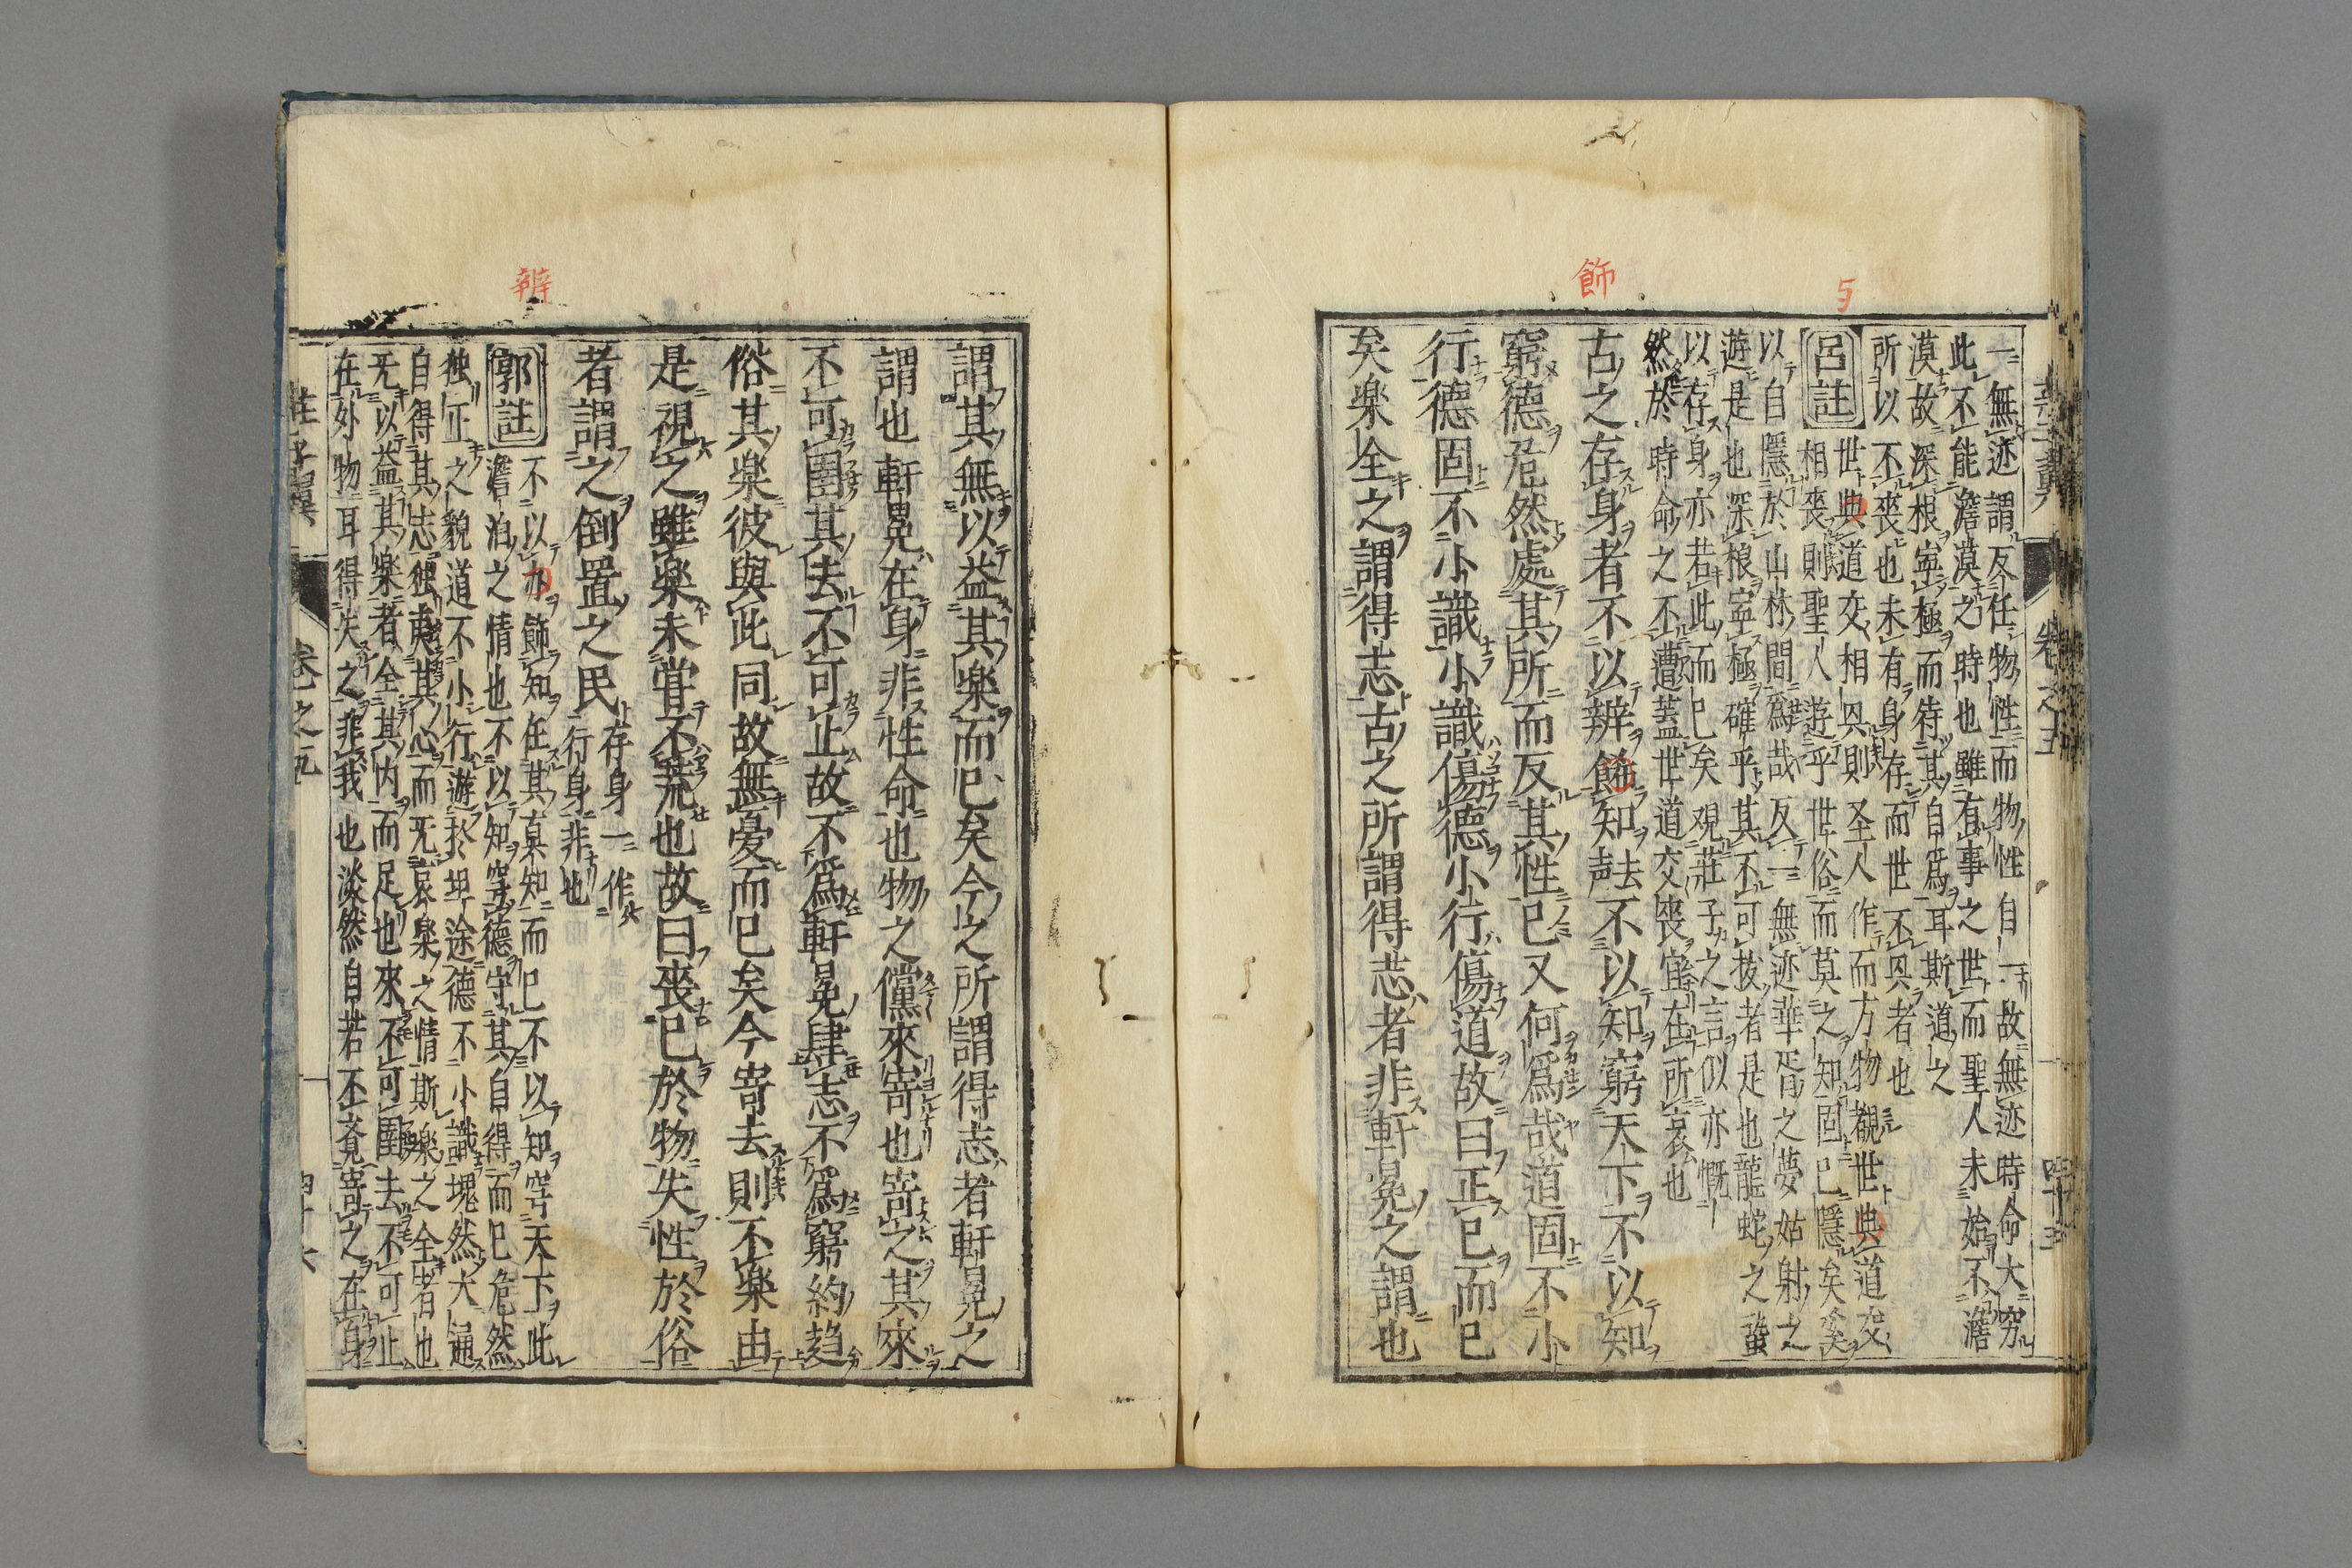 与
飾
莊子翼 卷之五 四十五
一無迹謂反任物性而物性自一故無迹時命大窮
此不能澹漠之時也雖有事之世而聖人未始不澹
漠故深根寧極而待其自爲耳斯道之
所以不喪也未有身存而世不興者也
呂註 世典道交相興則圣人作而方物覩世典道交
相喪則聖人遊乎世俗而莫之知固已隱矣奚
以自隱於山林間爲哉反一無迹華胥之夢姑射之
遊是也深根寧極確乎其不可拔者是也龍蛇之蟄
以存身亦若此而已矣观莊子之言似亦慨
然於時命之不遭蓋世道交喪寔在所哀也
古之存身者不以辨飾知去声不以知窮天下不以知
窮德危然處其所而反其性已又何爲哉道固不小
行德固不小識小識傷德小行傷道故曰正已而已
矣楽全之謂得志古之所謂得志者非軒冕之謂也
辨
謂其無以益其楽而已矣今之所謂得志者軒冕之
謂也軒冕在身非性命也物之儻來寄也寄之其來
不可圉其去不可止故不爲軒冕肆志不爲窮約趍
俗其楽彼與此同故無憂而已矣今寄去則不楽由
是視之雖楽未甞不荒也故曰喪已於物失性於俗
者謂之倒置之民 存身一作行身非也
郭註 不以亦飾知任其真知而已不以知窮天下此
澹泊之情也不以知窮德守其自得而已危然
独正之貌道不小行遊於坦途德不小識塊然大通
自得其志独夷其心而无哀楽之情斯楽之全者也
无以益其楽者全其内而足也來不可圉去不可止
在外物耳得失之非我也淡然自若不覺寄之在身
莊子翼 卷之五 四十六